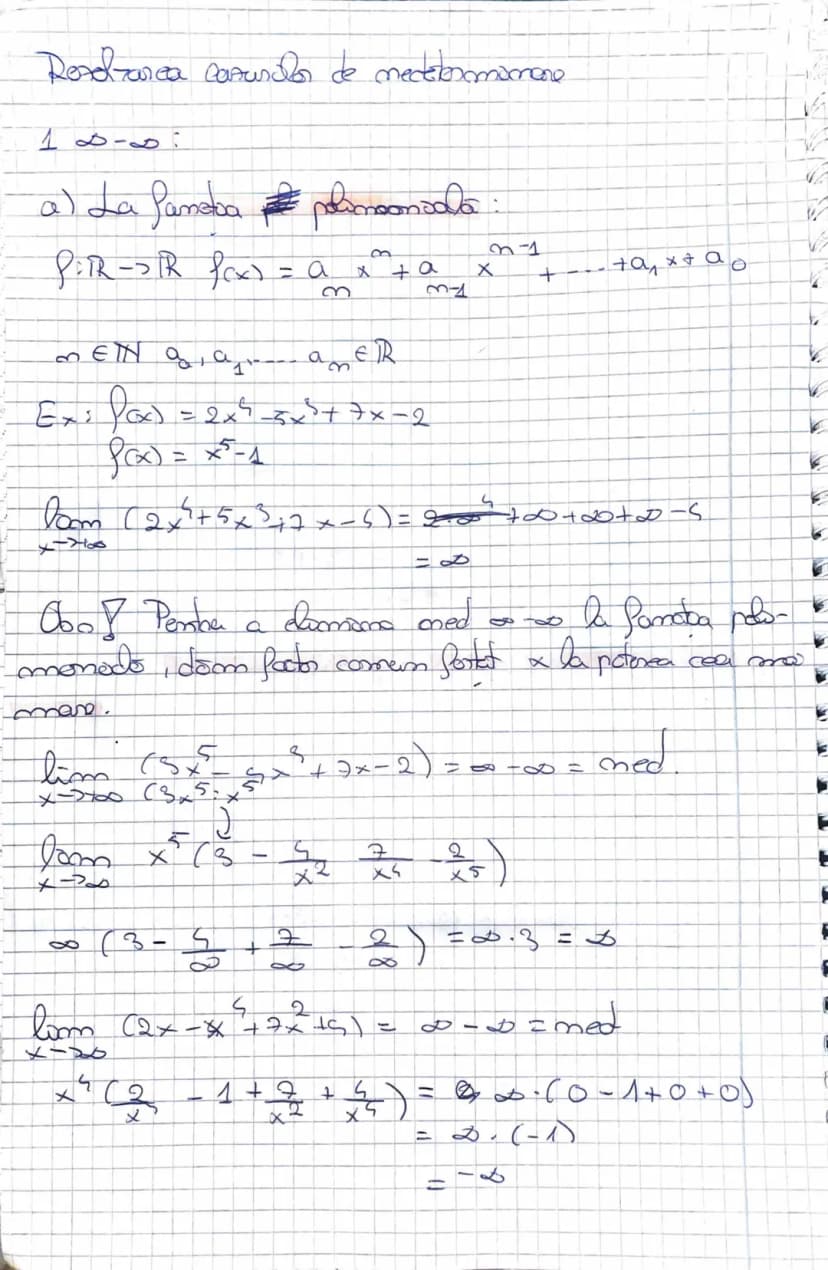 Rezolvarea cazurilor de nedeterminare
1 ∞-∞ :
a) La funcția polinomială :
f:ℝ->ℝ f(x) = aₙxⁿ + aₙ₋₁xⁿ⁻¹ + .... + a₁x + a₀
n ∈ ℕ a₀, a₁, .... aₙ ∈ ℝ
Ex: f(x) = 2x⁴ - 5x³ + 7x - 2
f(x) = x⁵ - 1
lim x->+∞ (2x⁴ + 5x³ + 7x - 4) = +∞ + ∞ + ∞ - 4
= ∞
Obs! Pentru a elimina ned ∞-∞ la funcția poli-
nomială, dăm factor comun forțat x la puterea cea mai
mare.
lim x->+∞ (3x⁵ - 4x³ + 7x - 2) = ∞ - ∞ = ned.
(3x⁵ : x⁵)
lim x->∞ x⁵ (3 - 4/x² 7/x⁴ - 2/x⁵)
∞ (3 - 4/∞ + 7/∞ - 2/∞) = ∞ · 3 = ∞
lim x->∞ (2x - x⁴ + 7x² + 4) = ∞ - ∞ = ned
x⁴ (2/x³ - 1 + 7/x² + 4/x⁴) = ∞ · (0 - 1 + 0 + 0)
= ∞ · (-1)
= -∞